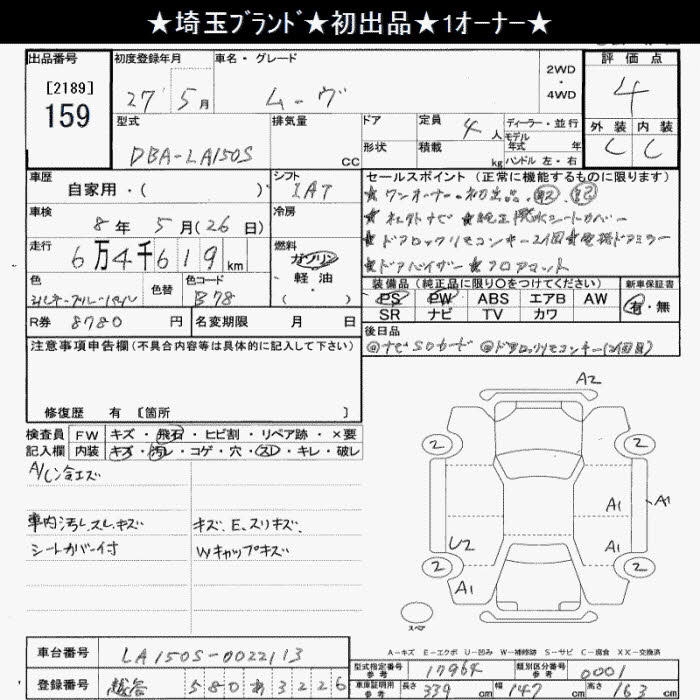 ★埼玉ﾌﾞﾗﾝﾄﾞ★初出品★1オーナー★
出品番号
[2189]
159
初度登録年月
27年5月
車名・グレード
ムーヴ
2WD
・
4WD
評価点
4
外装 内装
C C
型式
DBA-LA150S
排気量
CC
ドア
形状
定員
4人
積載
kg
ディーラー・並行
モデル
年式 年
ハンドル 左・右
車歴
自家用・( )
シフト
IAT
車検
8年5月(26日)
冷房
走行
6万4千619km
燃料
ガソリン
軽油
( )
色
色替
色コード
B78
R券 8780円
名変期限 月 日
セールスポイント (正常に機能するものに限ります)
★ワンオーナー・初出品
★社外ナビ★純正撥水シートカバー
★ドアロックリモコンキー2個★電格ドアミラー
★ドアバイザー★フロアマット
装備品(純正品に限り〇をつけてください)
PS PW ABS エアB AW
SR ナビ TV カワ
新車保証書
有・無
後日品
◎ナビSDカード ◎ドアロックリモコンキー(2個目)
注意事項申告欄(不具合内容等は具体的に記入して下さい)
修復歴 有 [箇所 ]
検査員 FW キズ・飛石・ヒビ割・リペア跡・×要
記入欄 内装 キズ・汚レ・コゲ・穴・スレ・キレ・破レ
A/C冷エズ
車内汚レ、スレ、キズ
シートカバー付
キズ、E、スリキズ、
Wキャップキズ
A2
2 2
A1 A1
U2 A1
2 2
A1
スペア
A-キズ E-エクボ U-凹み W-補修跡 S-サビ C-腐食 XX-交換済
車台番号 LA150S-0022113
登録番号 越谷 580 あ 3226
型式指定番号
参考
17964
類別区分番号
参考
0001
車庫証明用
参考
長さ 339cm 幅 147cm 高さ 163cm